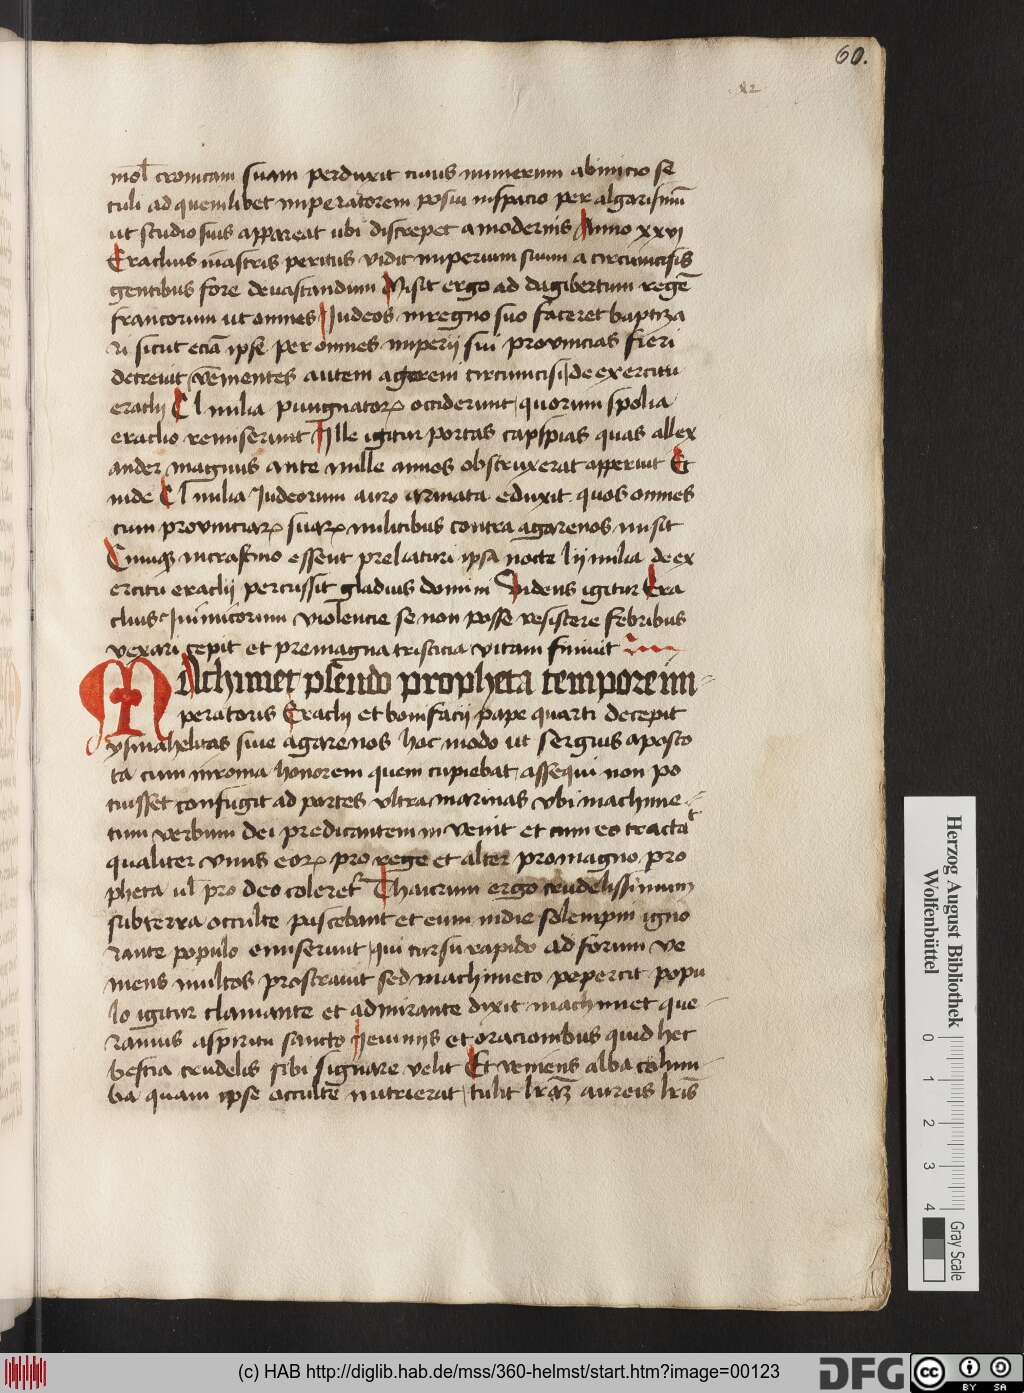 60.
82
mol̄ cronicam suam perduxit cuius numerum abinicio se
culi ad quemlibet imperatorem posui inspacio per algarismū
ut studiosius appareat ubi discrepet amodernis Anno xxvi
Eraclius inastris peritus vidit imperium suum a circumcisis
gentibus fore deuastandum Misit ergo ad dagibertum regē
francorum ut omnes Judeos inregno suo faceret baptiza
ri sicut eciā ipse per omnes imperij sui prouincias fieri
decreuit vēmentes autem agareni circumcisi de exercitu
eraclij Cl milia pungnatorꝝ occiderunt quorum spolia
eraclio remiserunt Ille igitur portas caspias quas allex
ander magnus ante mille annos obstruxerat apperuit Et
inde Cl milia Judeorum auro armata eduxit quos omnes
cum prouinciarꝝ suarꝝ militibus contra agarenos misit
Cumqꝫ incrastino essent preliaturi ipsa nocte lij milia de ex
ercitu eraclij percussit gladius domini Videns igitur Era
clius Inimicorum violencie se non posse resistere febribus
vexari cepit et premagna tristicia vitam finiuit
MAchimet pseudo propheta tempore im
peratoris Eraclij et bonifacij pape quarti decepit
ysmahelitas siue agarenos hoc modo ut sergius aposto
ta cum inroma honorem quem cupiebat assequi non po
tuisset confugit ad partes ultra marinas vbi machme
tum verbum dei predicantem in venit et cum eo tractat
qualiter vnus eorꝝ pro rege et alter promagno pro
pheta ul̄ pro deo coleret᷑ Thaurum ergo crudelissimum
subterra occulte pascebant et eum indie solempni igno
rante populo emiserunt qui cursu rapido ad forum ve
niens multos prostrauit sed machimeto pepercit popu
lo igitur clamante et admirante dixit machimet que
ramus aspiritu sancto Ieiunijs et oracionibus quid hec
bestia crudelis sibi signare velit Et veniens alba colum
ba quam ipse occulte nutrierat tulit lr̄aꝫ aureis lr̄is
Herzog August Bibliothek
Wolfenbüttel
0 1 2 3 4
Gray Scale
(c) HAB http://diglib.hab.de/mss/360-helmst/start.htm?image=00123
DFG
cc BY SA